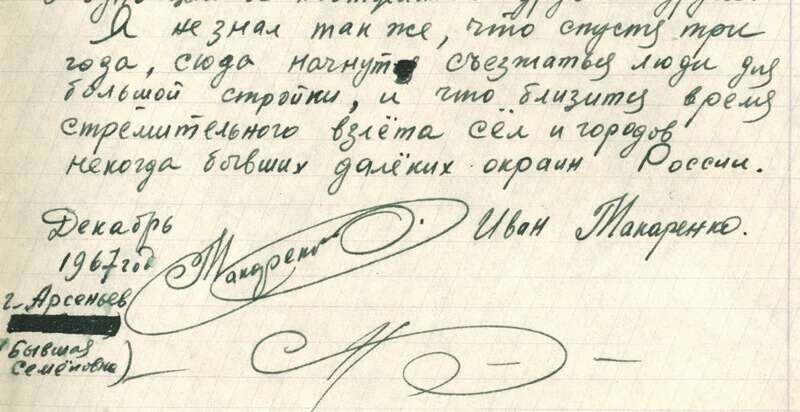 Я не знал так же, что спустя три
года, сюда начнут съезжаться люди для
большой стройки, и что близится время
стремительного взлёта сёл и городов
некогда бывших далёких окраин России.
Декабрь
1967 год
Макаренко
Иван Макаренко.
г. Арсеньев
(Бывшая
Семёновка)